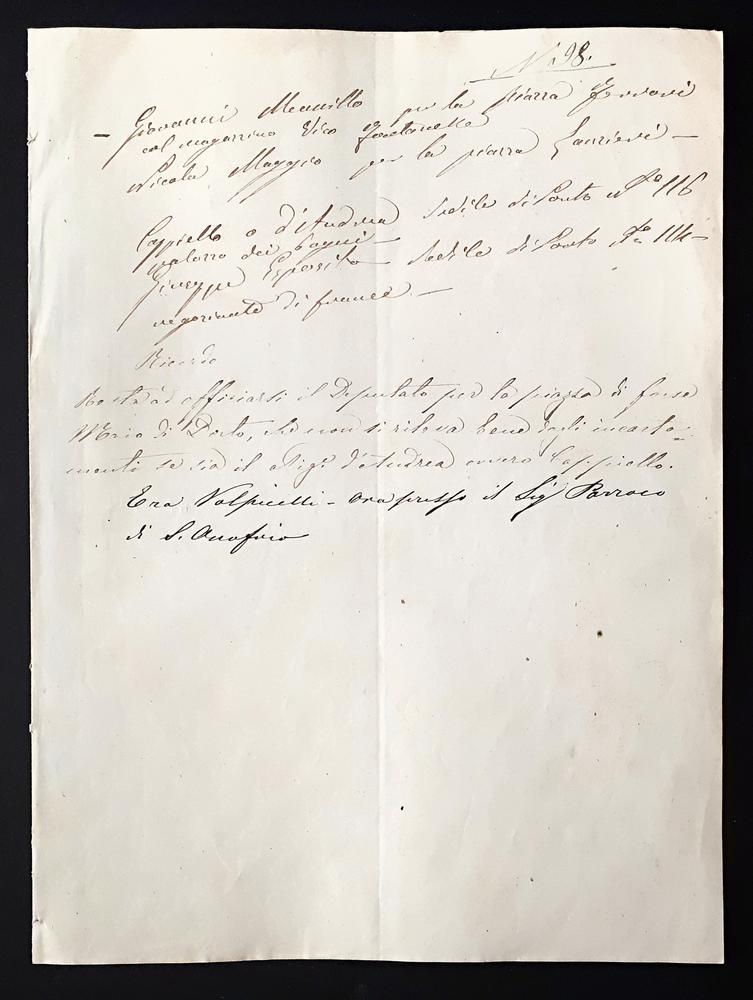 N. 98.
– Giovanni Mennillo per la piazza
col magazzino Vico Fontanella
Nicola Maggio per la piazza –
Cappiello o d'Andrea Sedile di Porto Nº 116
palazzo dei Pagni –
Giuseppe Esposito – Sedile di Porto Nº 114 –
negoziante di
Ricordo
officiarsi il Deputato per la piazza di
di Porto, che non si rileva bene dagli incarta=
menti se sia il Sigr d'Andrea ovvero Cappiello.
Era Volpicelli – ora presso il Sigr Parroco
di S. Onofrio